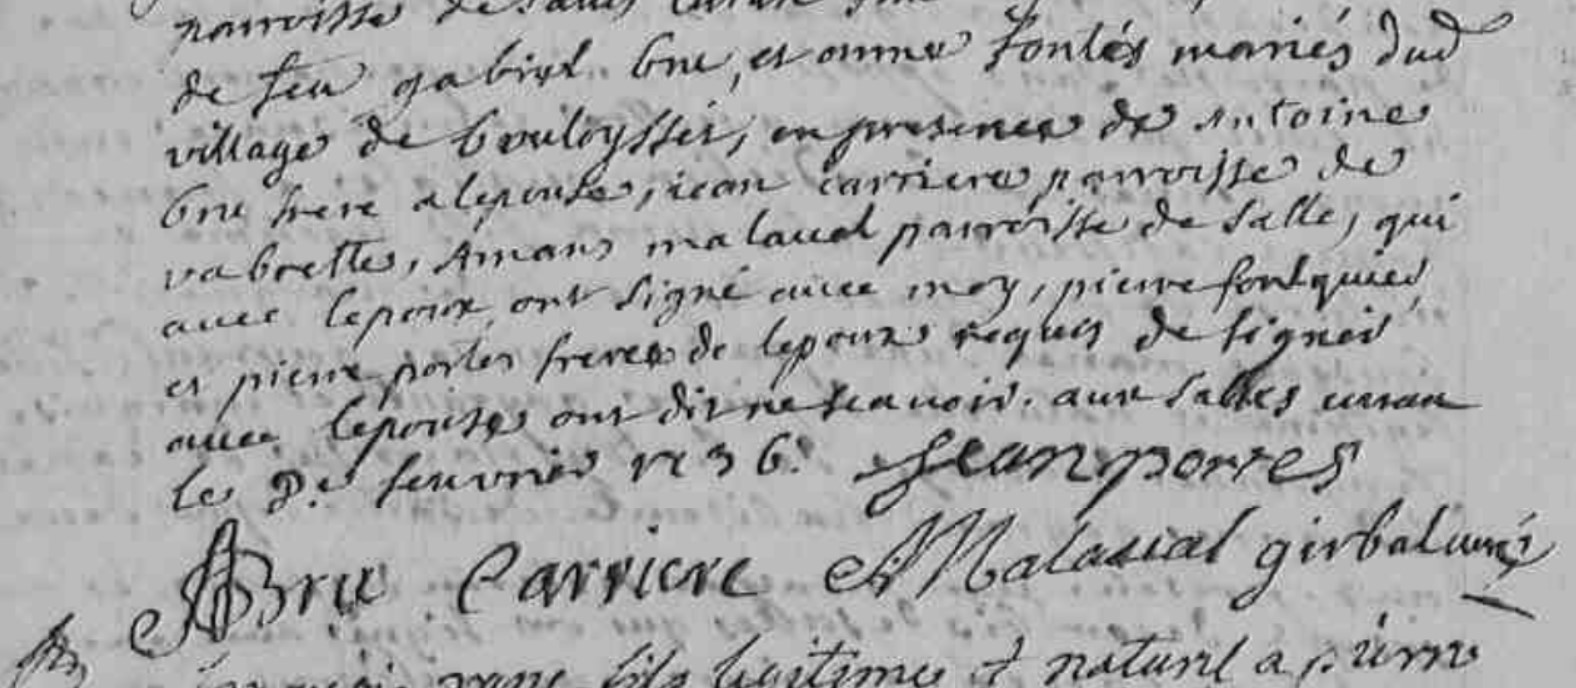 parroisse de
de feu gabriel bru, et anne fontés mariés dud
village de bouloysses, en presence de Antoine
bru frere a lepouse, jean carriere parroisse de
vabrette, Amans malaval parroisse de Salle, qui
avec lepoux ont signé avec moy, pierre foulquier
et pierre portes freres de lepoux requis de signer
avec lepouse ont dit ne scavoir. aux Salles curan
le Pr fevvrier 1736. Jean portes
ABru Carriere AMalaval girbal curé
fils legitime et naturel a pierre